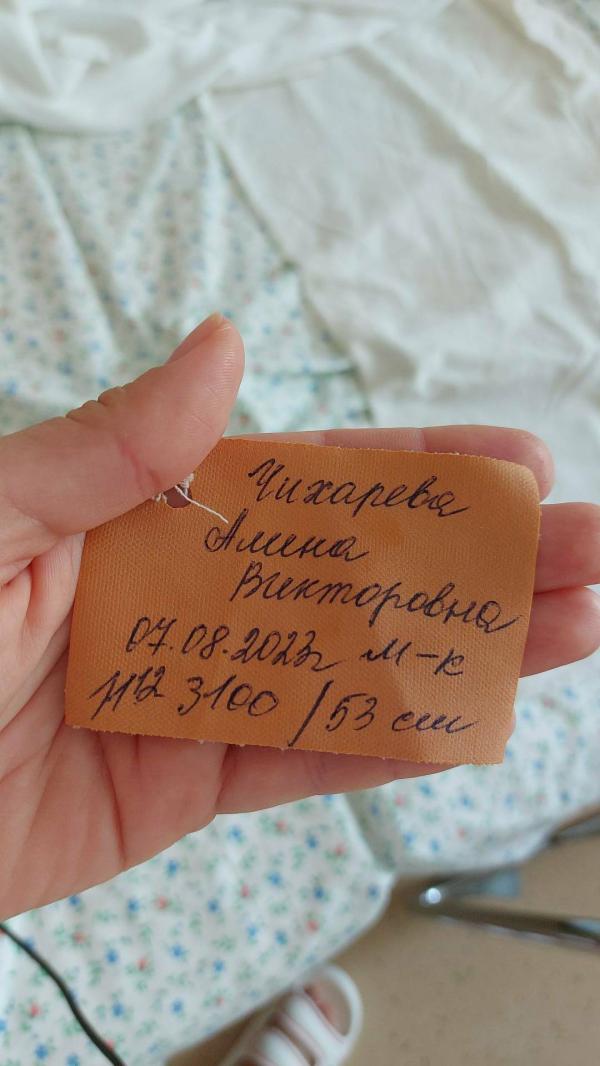 Чихарева
Алина
Викторовна
07.08.2023г м-к
11¹² 3100 / 53 см